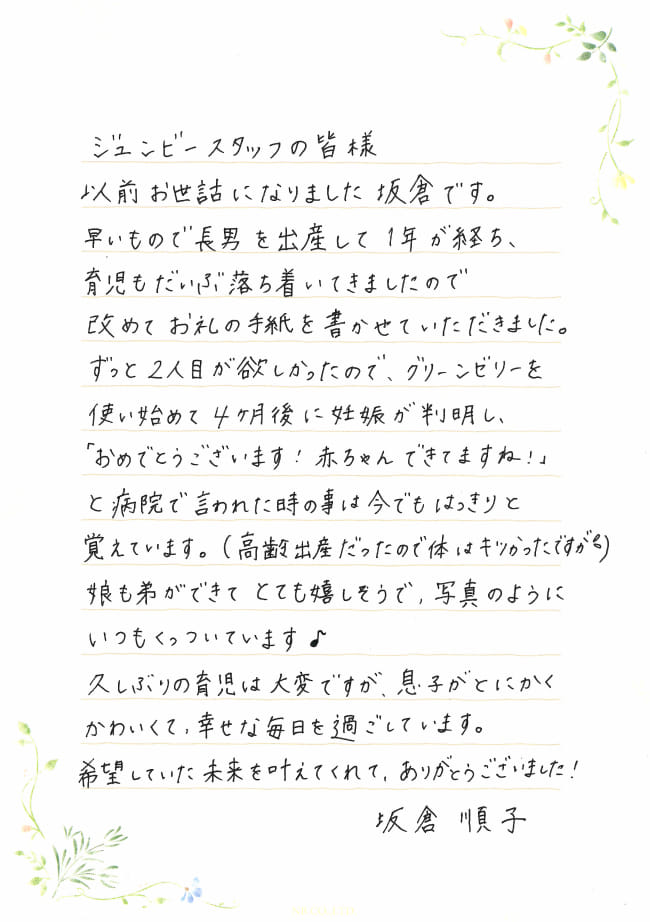 ジュンビースタッフの皆様
以前お世話になりました坂倉です。
早いもので長男を出産して1年が経ち、
育児もだいぶ落ち着いてきましたので
改めてお礼の手紙を書かせていただきました。
ずっと2人目が欲しかったので、グリーンゼリーを
使い始めて4ヶ月後に妊娠が判明し、
「おめでとうございます!赤ちゃんできてますね!」
と病院で言われた時の事は今でもはっきりと
覚えています。(高齢出産だったので体はキツかったですが)
娘も弟ができてとても嬉しそうで,写真のように
いつもくっついています♪
久しぶりの育児は大変ですが、息子がとにかく
かわいくて,幸せな毎日を過ごしています。
希望していた未来を叶えてくれて,ありがとうございました!
坂倉 順子